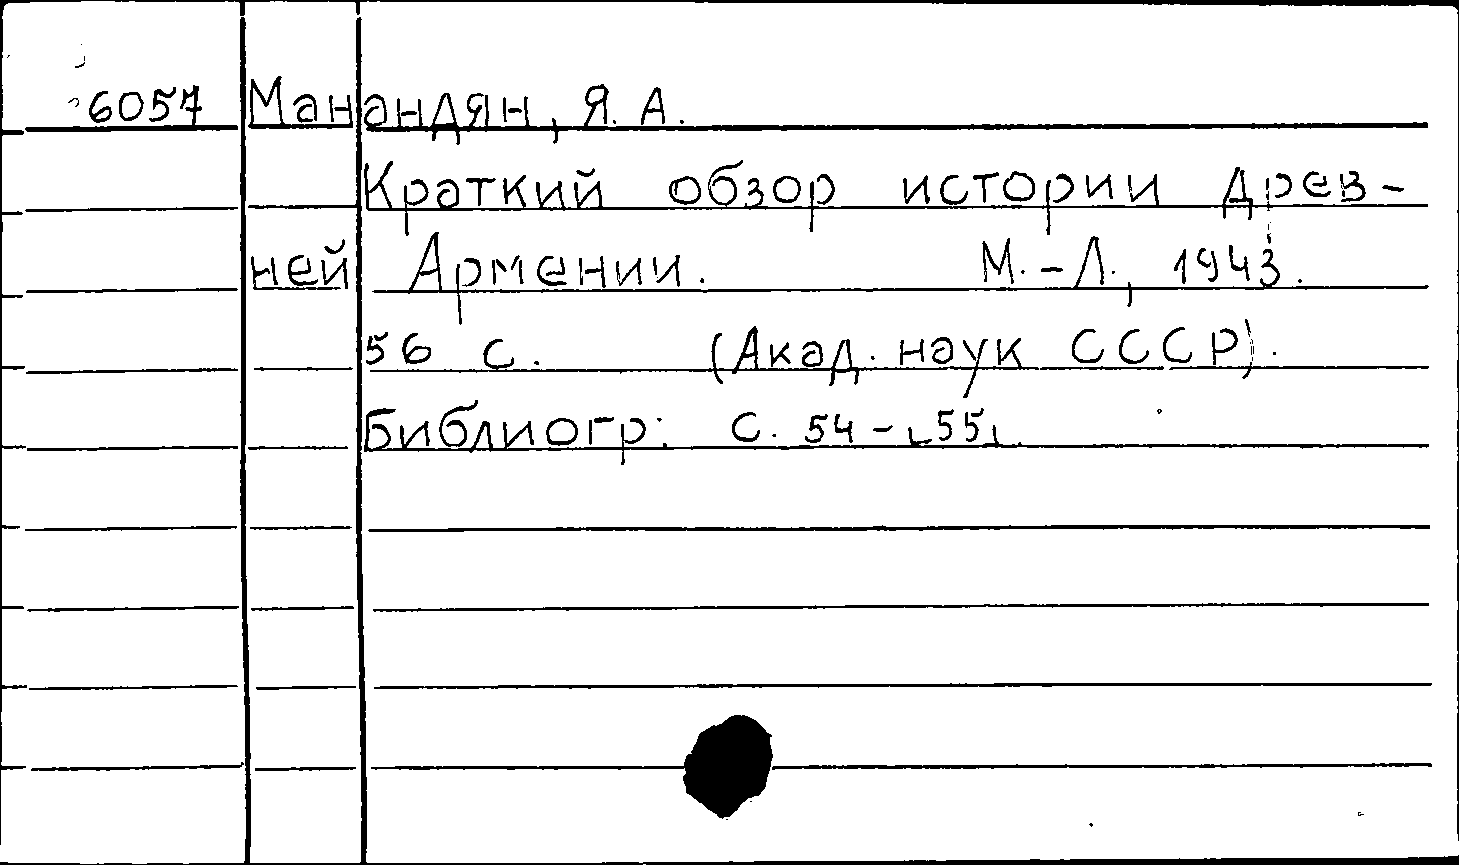 6057 Манандян, Я. А.
Краткий обзор истории древ-
ней Армении. М.-Л., 1943.
56 с. (Акад. наук СССР).
Библиогр: с. 54-[55].